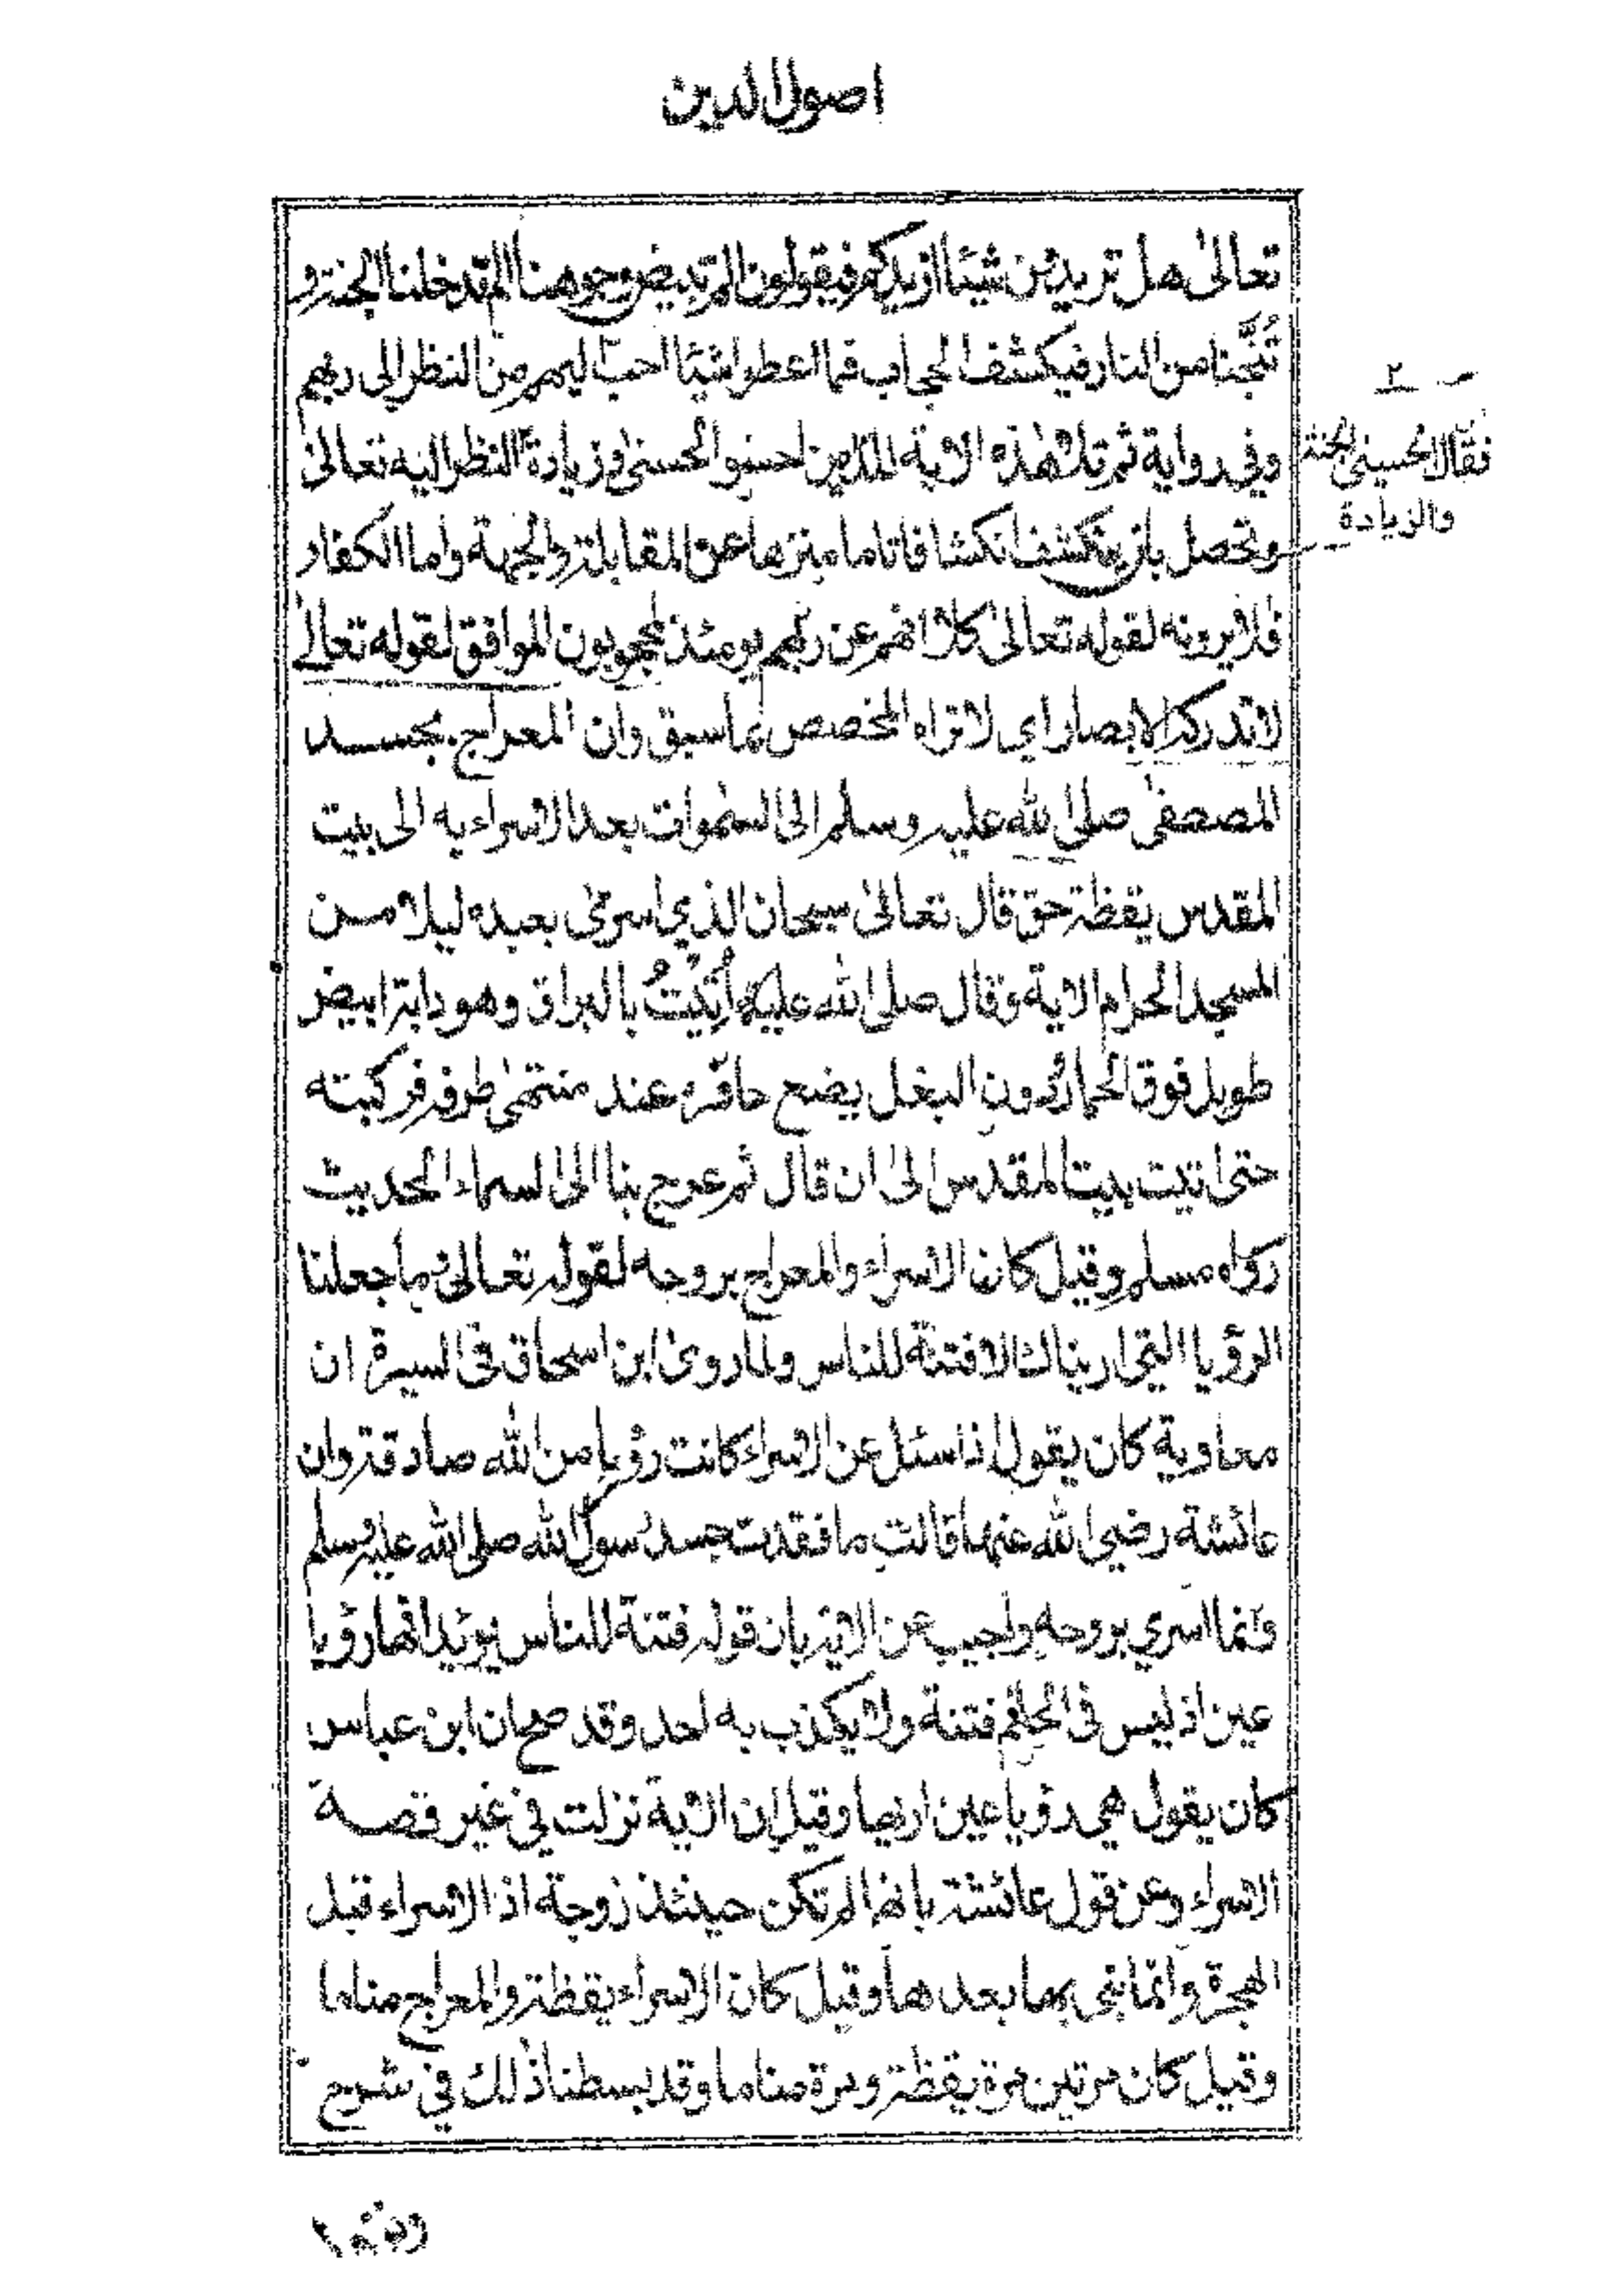 اصول الدين
تعالى هل تريدون شيئا ازيدكم فيقولون الم تبيض وجوهنا الم تدخلنا الجنة و
تُنَجِّنا من النار فيكشف الحجاب فما اعطوا شيئا احب اليهم من النظر الى ربهم
وفي رواية ثم تلا هذه الاية للذين احسنوا الحسنى وزيادة النظر اليه تعالى
وتحصل بان ينكشف انكشافا تاما منزها عن المقابلة والجهة واما الكفار
فلا يرونه لقوله تعالى كلا انهم عن ربهم يومئذ لمحجوبون الموافق لقوله تعالى
لا تدركه الابصار اي لا تراه المخصص بما سبق وان المعراج بجسد
المصطفى صلى الله عليه وسلم الى السموات بعد الاسراء به الى بيت
المقدس يقظة حق قال تعالى سبحان الذي اسرى بعبده ليلا من
المسجد الحرام الاية وقال صلى الله عليه أُتِيْتُ بالبراق وهو دابة ابيض
طويل فوق الحمار دون البغل يضع حافره عند منتهى طرفه فركبته
حتى اتيت بيت المقدس الى ان قال ثم عرج بنا الى السماء الحديث
رواه مسلم وقيل كان الاسراء والمعراج بروحه لقوله تعالى وما جعلنا
الرؤيا التي اريناك الا فتنة للناس ولما روى ابن اسحاق في السيرة ان
معاوية كان يقول اذا سئل عن الاسراء كانت رؤيا من الله صادقة وان
عائشة رضي الله عنها قالت ما فقدت جسد رسول الله صلى الله عليه وسلم
وانما اسري بروحه واجيب عن الاية بان قوله فتنة للناس يؤيد انها رؤيا
عين اذ ليس في الحلم فتنة ولا يكذب به احد وقد صح ان ابن عباس
كان يقول هي رؤيا عين اريها وقيل ان الاية نزلت في غير قصة
الاسراء وعن قول عائشة بانها لم تكن حينئذ زوجة اذ الاسراء قبل
الهجرة وانما بنى بها بعدها وقيل كان الاسراء يقظة والمعراج مناما
وقيل كان مرتين مرة يقظة ومرة مناما وقد بسطنا ذلك في شرح
٢
فقال الحسنى الجنة
والزيادة